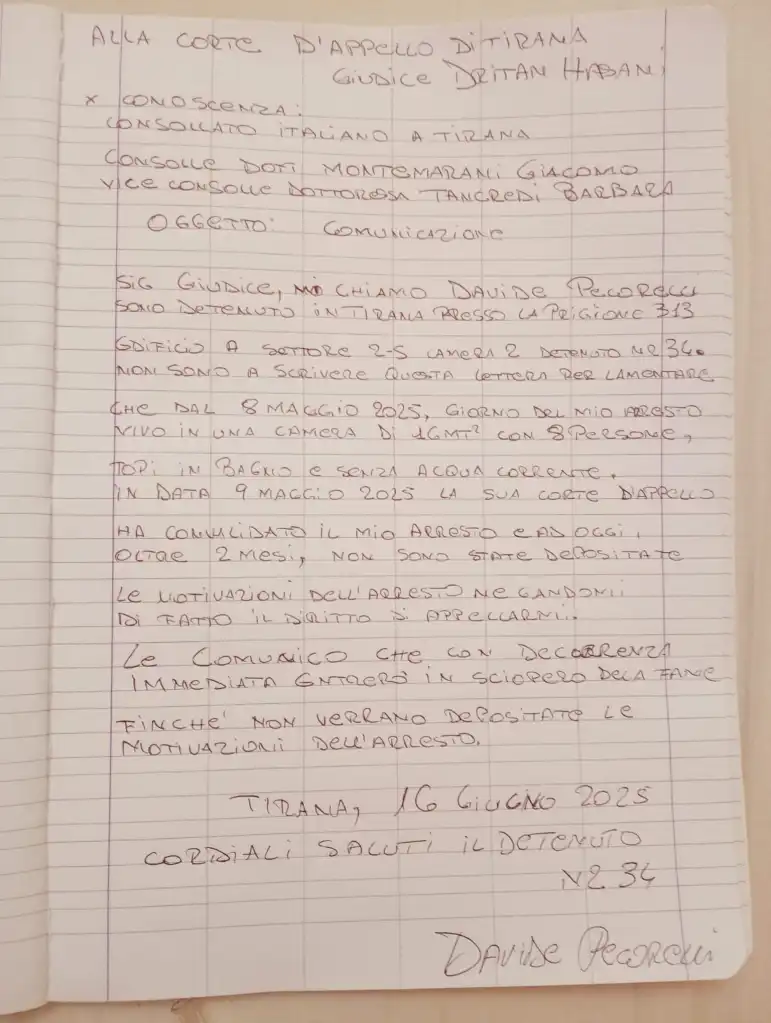 ALLA CORTE D'APPELLO DI TIRANA
GIUDICE DRITAN HABANI
X CONOSCENZA:
CONSOLLATO ITALIANO A TIRANA
CONSOLLE DOTT MONTEMARANI GIACOMO
VICE CONSOLLE DOTTORESSA TANCREDI BARBARA
OGGETTO: COMUNICAZIONE
SIG GIUDICE, MI CHIAMO DAVIDE PECORELLI
SONO DETENUTO IN TIRANA PRESSO LA PRIGIONE 313
EDIFICIO A SETTORE 2-S CAMERA 2 DETENUTO NR 34.
NON SONO A SCRIVERE QUESTA LETTERA PER LAMENTARE
CHE DAL 8 MAGGIO 2025, GIORNO DEL MIO ARRESTO
VIVO IN UNA CAMERA DI 16MT² CON 8 PERSONE,
TOPI IN BAGNO E SENZA ACQUA CORRENTE.
IN DATA 9 MAGGIO 2025 LA SUA CORTE D'APPELLO
HA CONVALIDATO IL MIO ARRESTO E AD OGGI,
OLTRE 2 MESI, NON SONO STATE DEPOSITATE
LE MOTIVAZIONI DELL'ARRESTO NEGANDOMI
DI FATTO IL DIRITTO DI APPELLARMI.
LE COMUNICO CHE CON DECORRENZA
IMMEDIATA ENTRERÒ IN SCIOPERO DELA FAME
FINCHE' NON VERRANO DEPOSITATE LE
MOTIVAZIONI DELL'ARRESTO.
TIRANA, 16 GIUGNO 2025
CORDIALI SALUTI IL DETENUTO
NR 34
DAVIDE PECORELLI